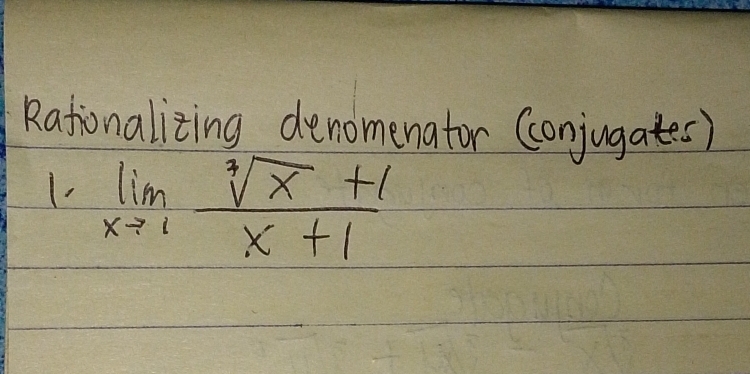 Rationalizing denomenator (conjugates)
1. lim x→1 ∛x +1 / x +1